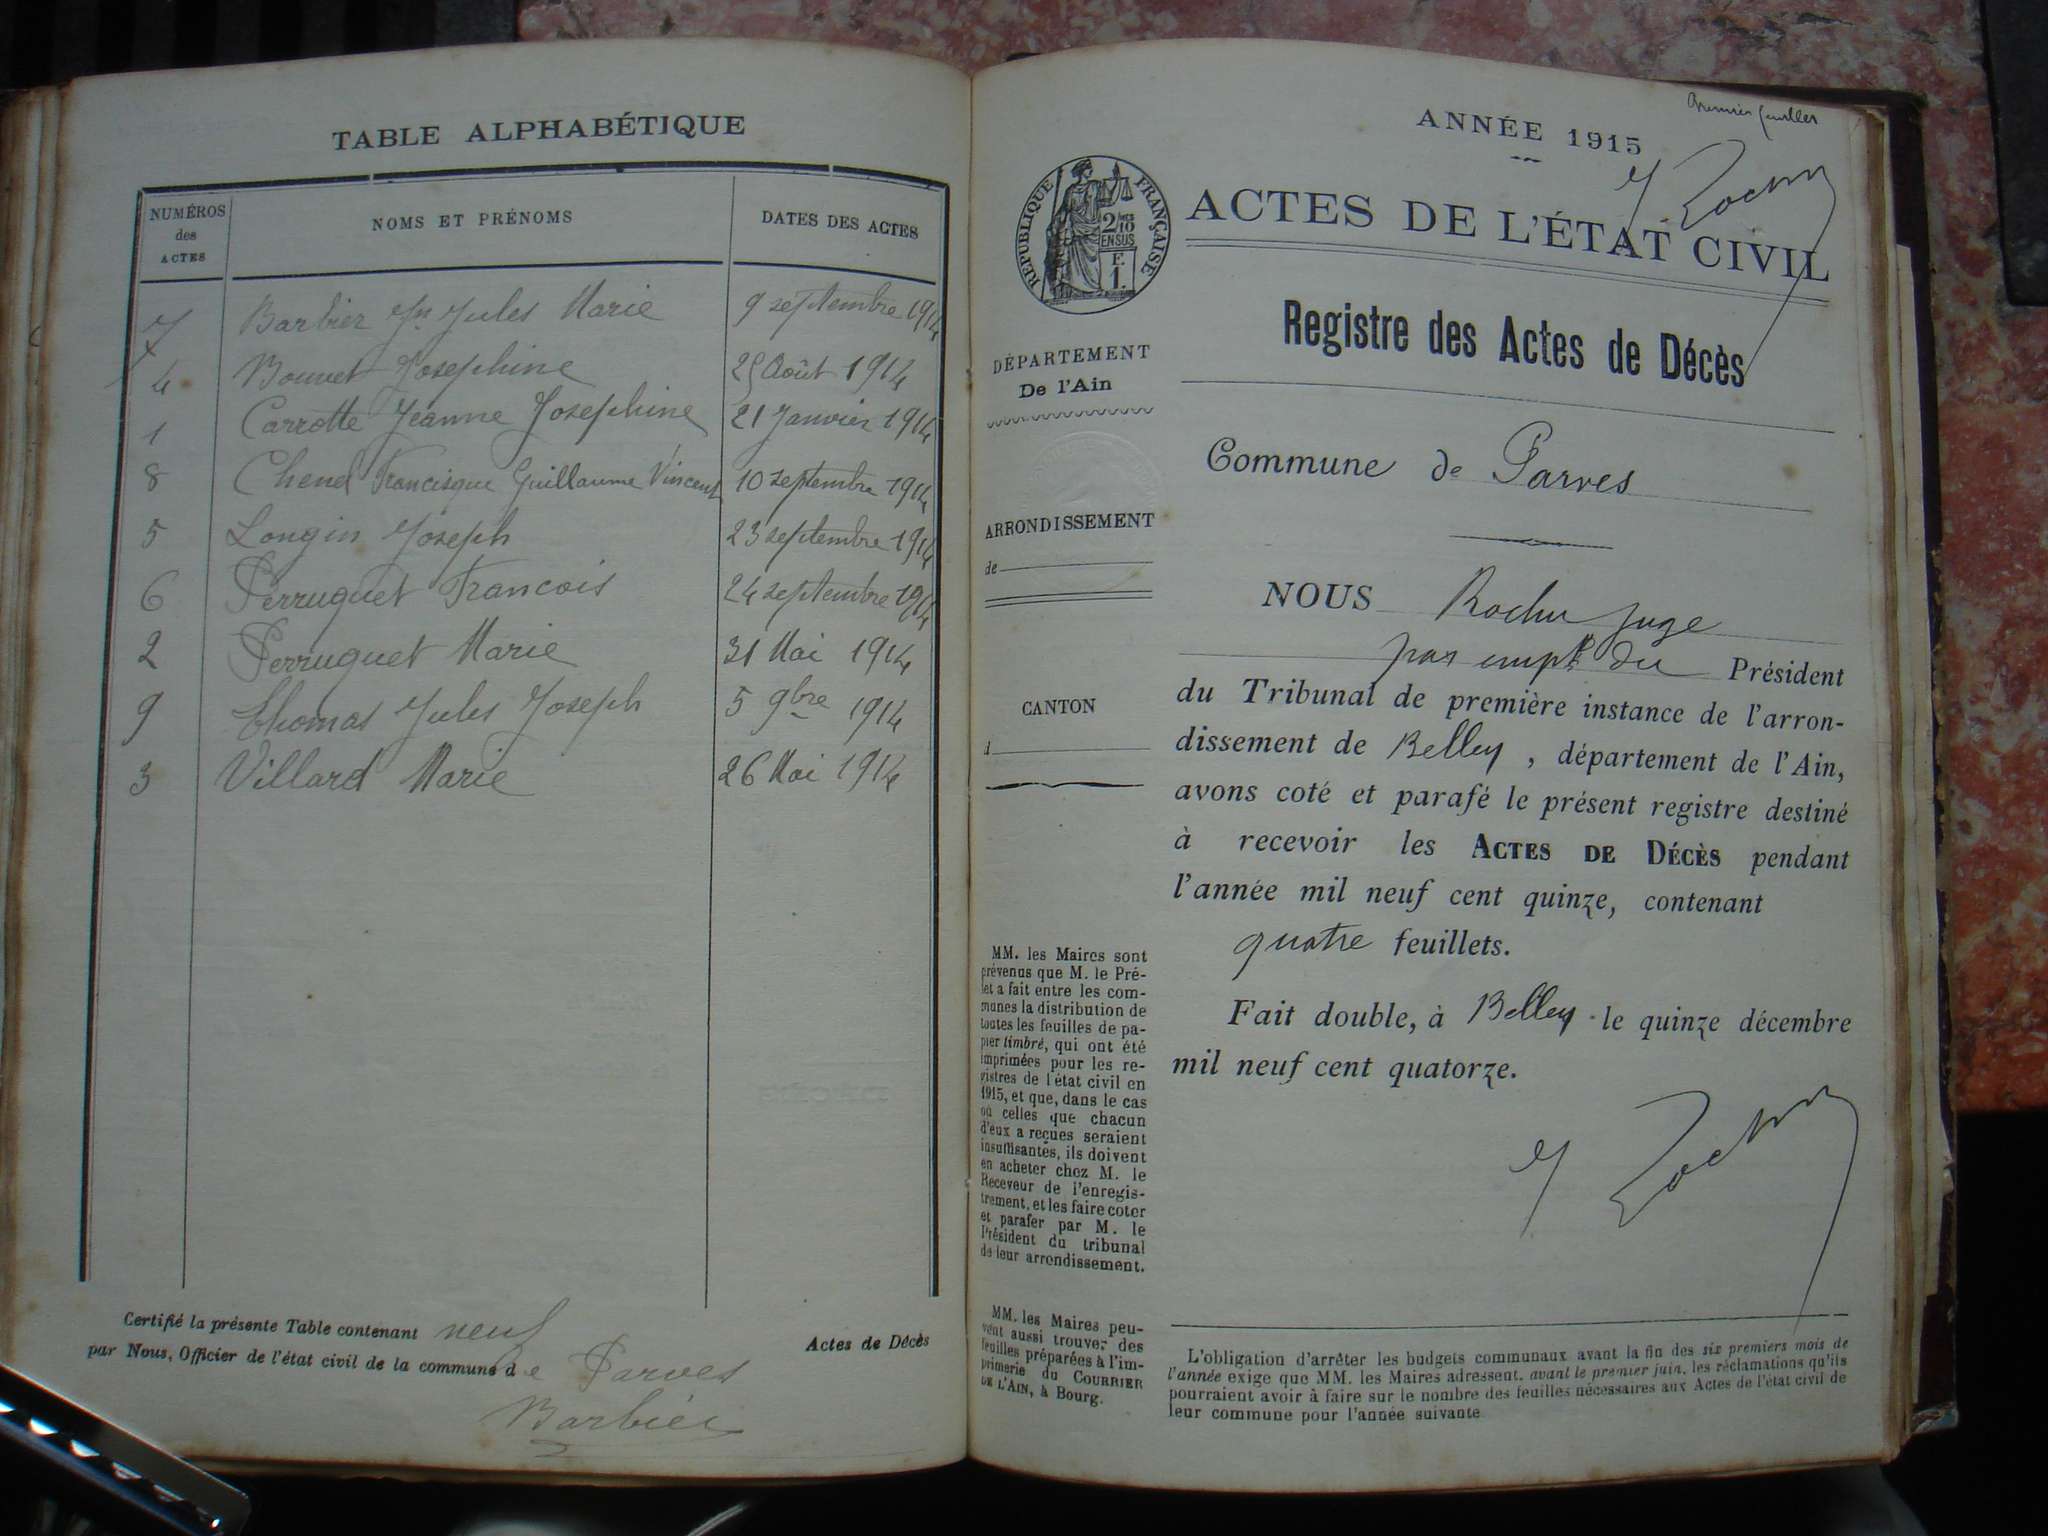 TABLE ALPHABÉTIQUE
NUMÉROS des ACTES NOMS ET PRÉNOMS DATES DES ACTES
7 Barbier Jn Jules Marie 9 septembre 1914
4 Bonnet Joséphine 25 Août 1914
1 Carrotte Jeanne Joséphine 21 Janvier 1914
8 Chenel Francisque Guillaume Vincent 10 septembre 1914
5 Longin Joseph 23 septembre 1914
6 Perruquet Francois 24 septembre 1914
2 Perruquet Marie 31 Mai 1914
9 Thomas Jules Joseph 5 9bre 1914
3 Villard Marie 26 Mai 1914
Certifié la présente Table contenant neuf Actes de Décès
par Nous, Officier de l'état civil de la commune de Parves
Barbier
Premier feuillet
ANNÉE 1915
ACTES DE L'ÉTAT CIVIL
RÉPUBLIQUE FRANÇAISE
2/10 EN SUS
F. 1.
Registre des Actes de Décès
DÉPARTEMENT
De l'Ain
Commune de Parves
ARRONDISSEMENT
de
CANTON
d
NOUS Rocher juge
par empt du Président
du Tribunal de première instance de l'arron-
dissement de Belley, département de l'Ain,
avons coté et parafé le présent registre destiné
à recevoir les ACTES DE DÉCÈS pendant
l'année mil neuf cent quinze, contenant
quatre feuillets.
Fait double, à Belley le quinze décembre
mil neuf cent quatorze.
MM. les Maires sont
prévenus que M. le Pré-
fet a fait entre les com-
munes la distribution de
toutes les feuilles de pa-
pier timbré, qui ont été
imprimées pour les re-
gistres de l'état civil en
1915, et que, dans le cas
où celles que chacun
d'eux a reçues seraient
insuffisantes, ils doivent
en acheter chez M. le
Receveur de l'enregis-
trement, et les faire coter
et parafer par M. le
Président du tribunal
de leur arrondissement.
MM. les Maires peu-
vent aussi trouver des
feuilles préparées à l'im-
primerie du COURRIER
DE L'AIN, à Bourg.
L'obligation d'arrêter les budgets communaux avant la fin des six premiers mois de
l'année exige que MM. les Maires adressent, avant le premier juin, les réclamations qu'ils
pourraient avoir à faire sur le nombre des feuilles nécessaires aux Actes de l'état civil de
leur commune pour l'année suivante